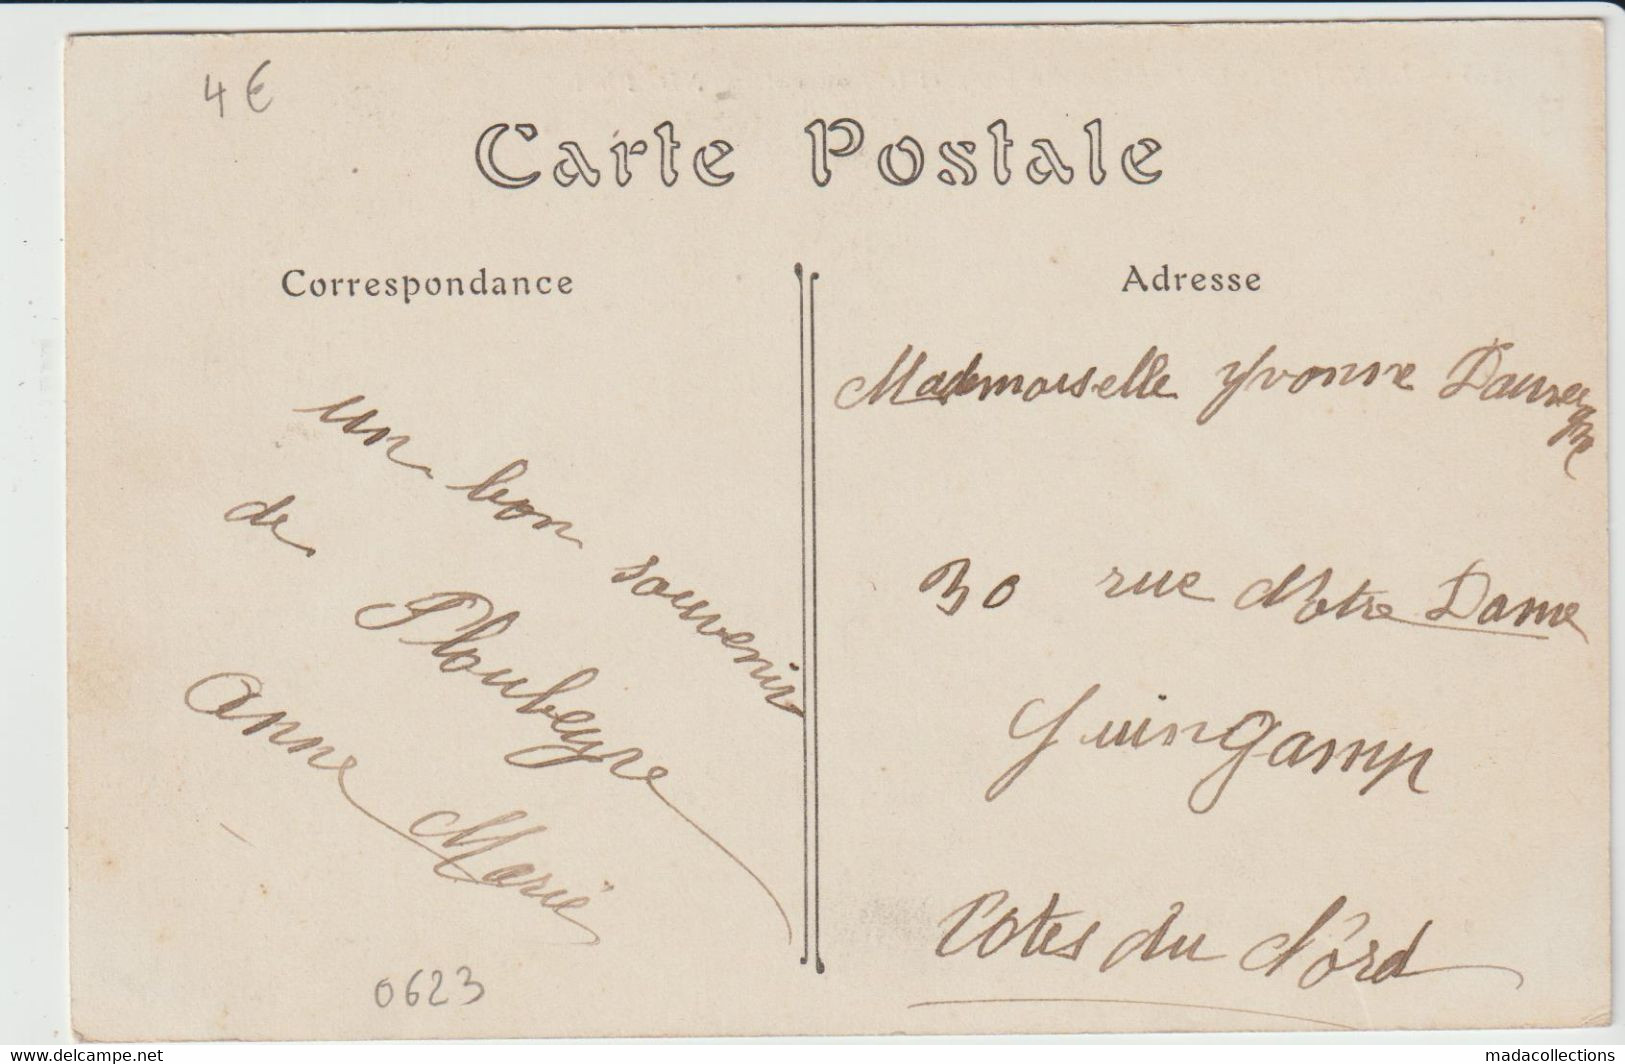 4€
Carte Postale
Correspondance
un bon souvenir
de Ploubeyre
Anne Marie
0623
Adresse
Mademoiselle Yvonne
30 rue Notre Dame
Guingamp
Côtes du Nord
www.delcampe.net
madacollections